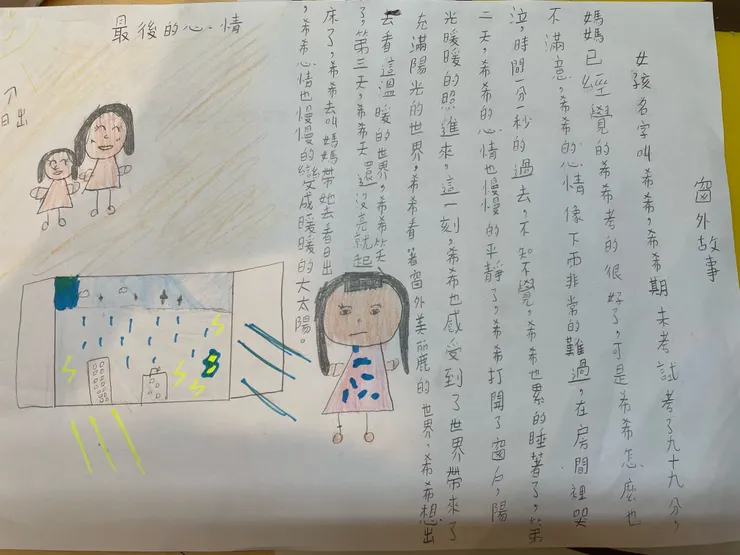 窗外故事
女孩名字叫希希,希希期末考試考了九十九分,
媽媽已經覺的希希考的很好了,可是希希怎麼也
不滿意,希希的心情像下雨非常的難過,在房間裡哭
泣,時間一分一秒的過去,不知不覺,希希也累的睡著了,第
二天,希希的心情也慢慢的平靜了,希希打開了窗戶,陽
光暖暖的照進來,這一刻,希希也感受到了世界帶來了
充滿陽光的世界,希希看著窗外美麗的世界,希希想出
去看這溫暖的世界,希希笑
了,第三天,希希天還沒亮就起
床了,希希去叫媽媽帶她去看日出
,希希心情也慢慢的變成暖暖的大太陽。
最後的心情
日出